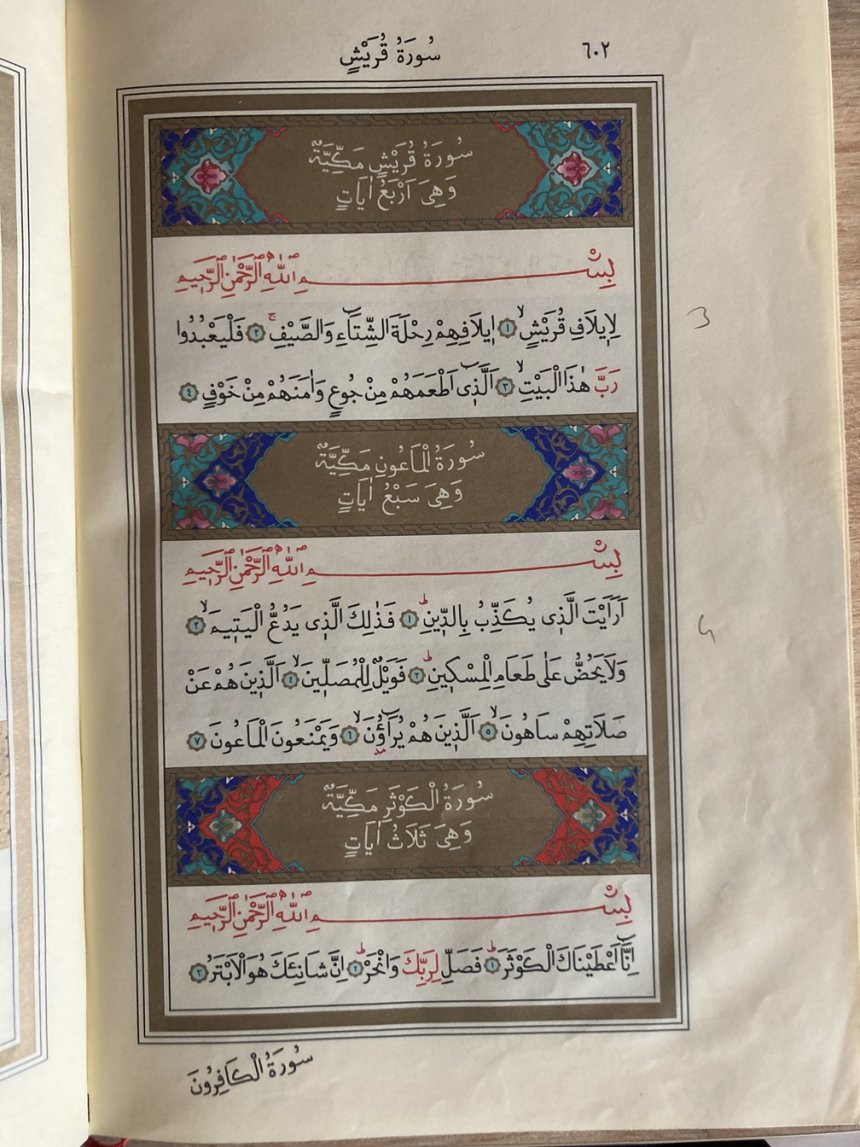 سُورَةُ قُرَيْشٍ ٦٠٢
سُورَةُ قُرَيْشٍ مَكِّيَّةٌ
وَهِيَ اَرْبَعُ اٰيَاتٍ
بِسْمِ اللّٰهِ الرَّحْمٰنِ الرَّحِيمِ
لِاِيلَافِ قُرَيْشٍۙ ﴿١﴾ اٖيلَافِهِمْ رِحْلَةَ الشِّتَٓاءِ وَالصَّيْفِۚ ﴿٢﴾ فَلْيَعْبُدُوا
رَبَّ هٰذَا الْبَيْتِۙ ﴿٣﴾ اَلَّذٖٓى اَطْعَمَهُمْ مِنْ جُوعٍ وَاٰمَنَهُمْ مِنْ خَوْفٍ ﴿٤﴾
سُورَةُ الْمَاعُونِ مَكِّيَّةٌ
وَهِيَ سَبْعُ اٰيَاتٍ
بِسْمِ اللّٰهِ الرَّحْمٰنِ الرَّحِيمِ
اَرَاَيْتَ الَّذٖى يُكَذِّبُ بِالدّٖينِؕ ﴿١﴾ فَذٰلِكَ الَّذٖى يَدُعُّ الْيَتٖيمَۙ ﴿٢﴾
وَلَا يَحُضُّ عَلٰى طَعَامِ الْمِسْكٖينِؕ ﴿٣﴾ فَوَيْلٌ لِلْمُصَلّٖينَۙ ﴿٤﴾ اَلَّذٖينَ هُمْ عَنْ
صَلَاتِهِمْ سَاهُونَۙ ﴿٥﴾ اَلَّذٖينَ هُمْ يُرَٓاؤُ۫نَۙ ﴿٦﴾ وَيَمْنَعُونَ الْمَاعُونَ ﴿٧﴾
سُورَةُ الْكَوْثَرِ مَكِّيَّةٌ
وَهِيَ ثَلَاثُ اٰيَاتٍ
بِسْمِ اللّٰهِ الرَّحْمٰنِ الرَّحِيمِ
اِنَّٓا اَعْطَيْنَاكَ الْكَوْثَرَؕ ﴿١﴾ فَصَلِّ لِرَبِّكَ وَانْحَرْؕ ﴿٢﴾ اِنَّ شَانِئَكَ هُوَ الْاَبْتَرُ ﴿٣﴾
سُورَةُ الْكَافِرُونَ